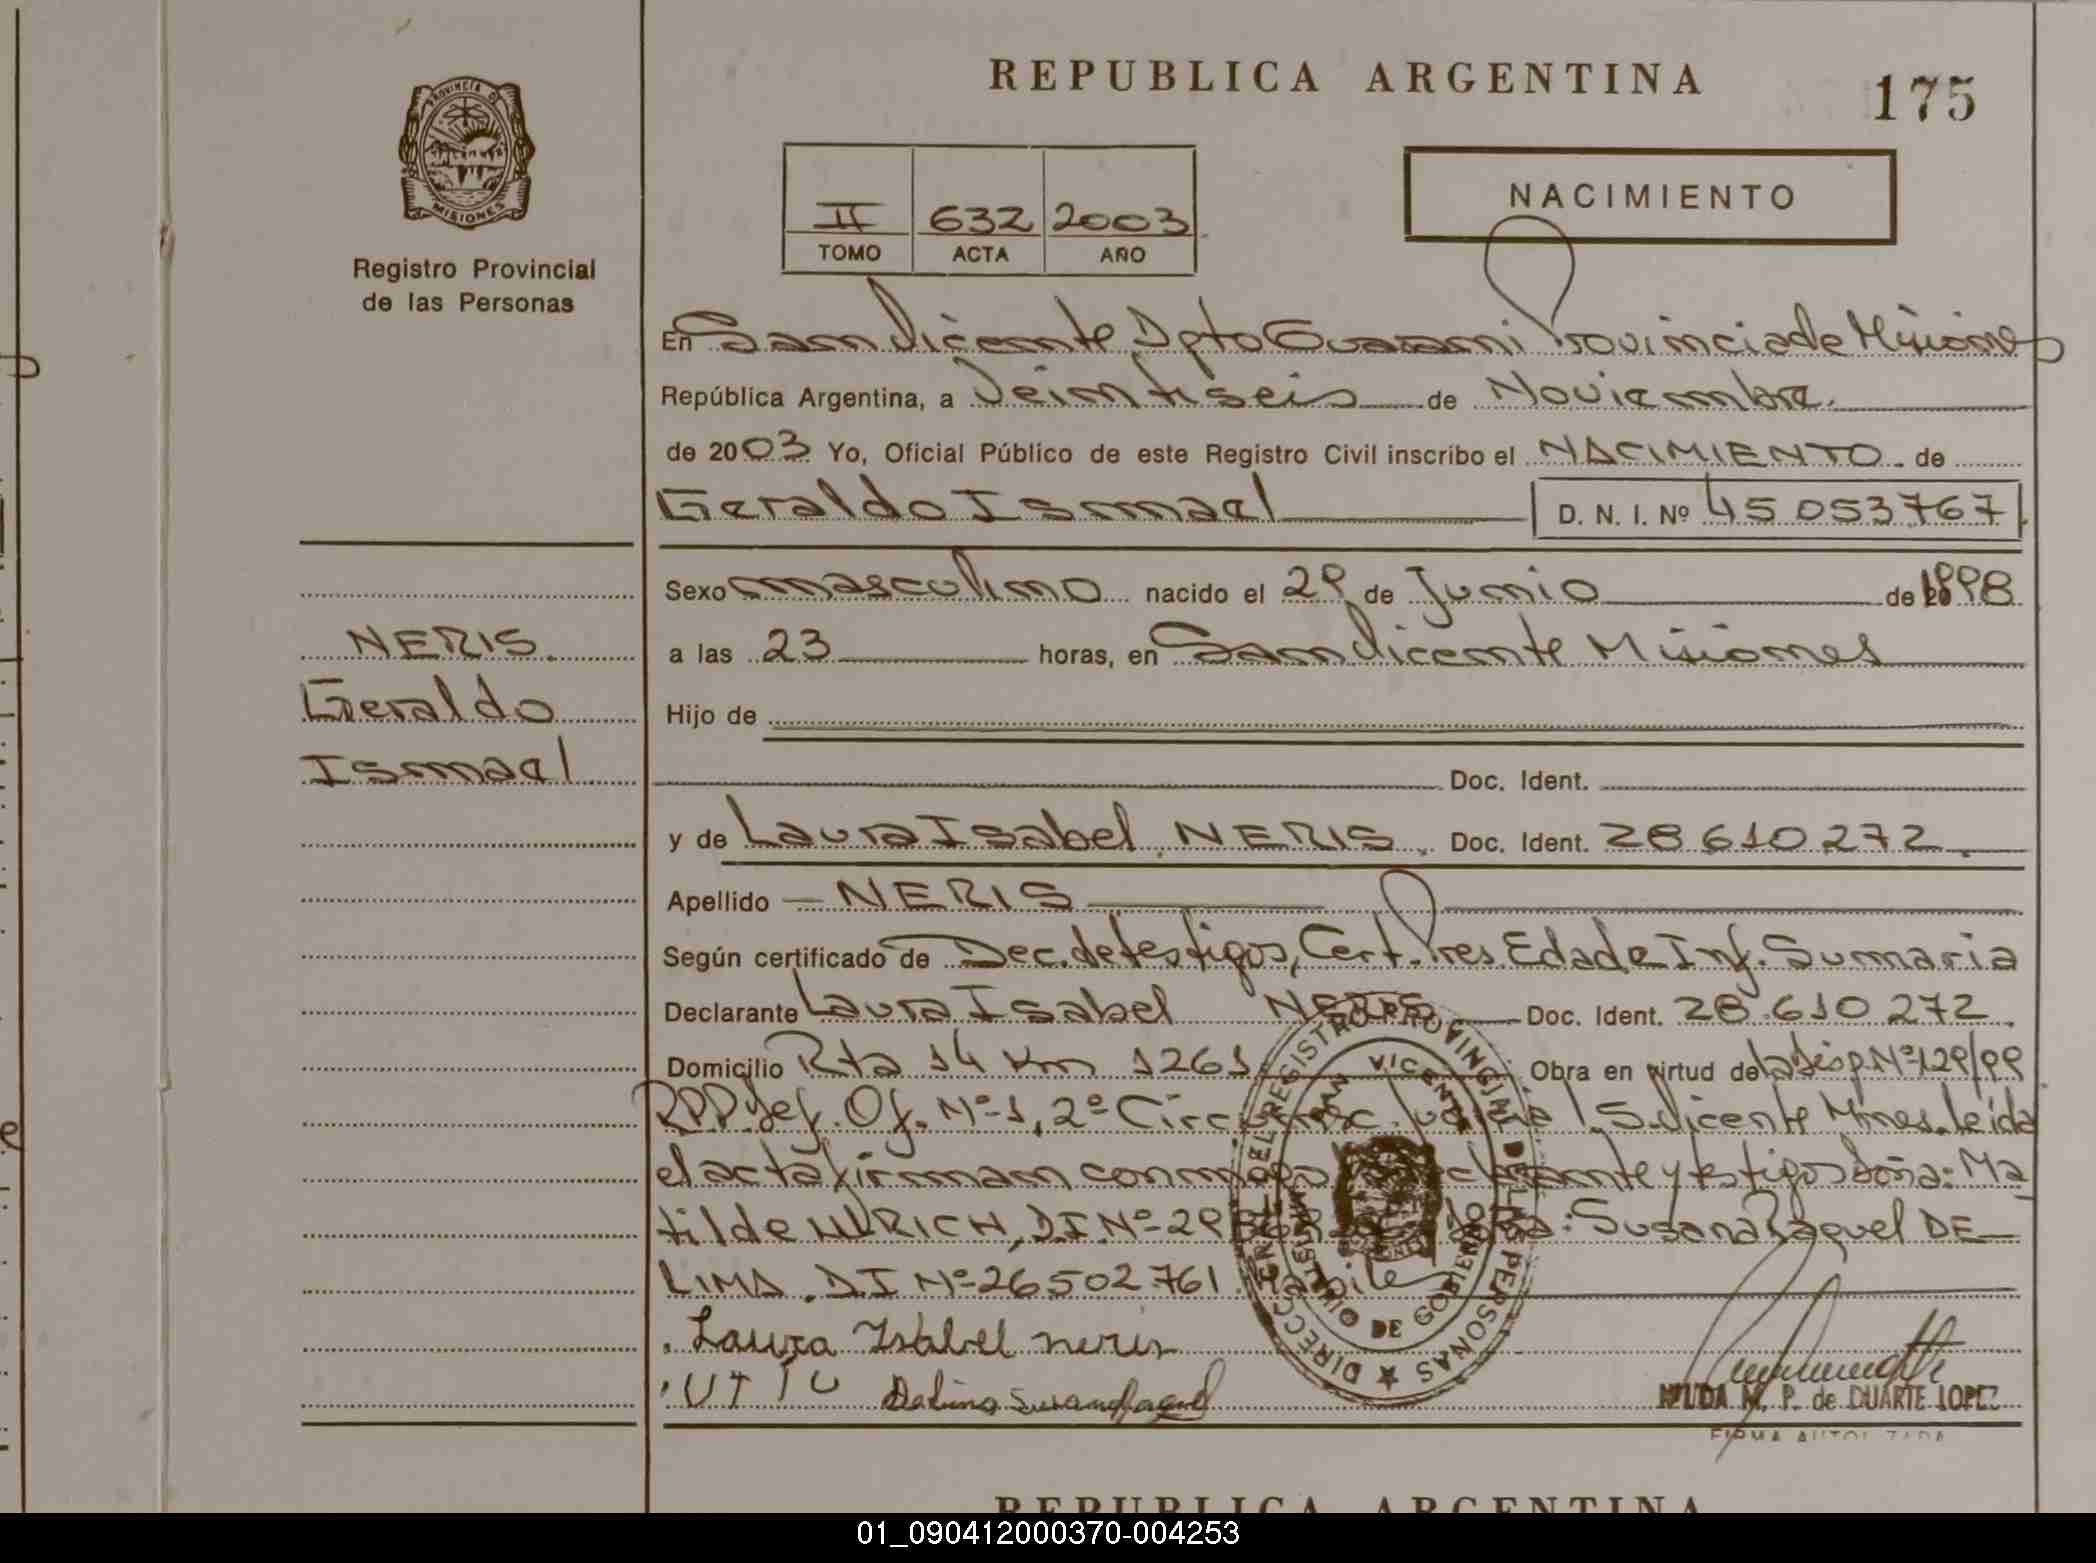 REPUBLICA ARGENTINA
175
PROVINCIA DE
MISIONES
Registro Provincial
de las Personas
II 632 2003
TOMO ACTA AÑO
NACIMIENTO
En San Vicente Dpto Guarani Provincia de Misiones
República Argentina, a Veintiseis de Noviembre.
de 2003 Yo, Oficial Público de este Registro Civil inscribo el NACIMIENTO de
Geraldo Ismael D. N. I. Nº 45 053767
Sexo masculino nacido el 29 de Junio de 1998
a las 23 horas, en San Vicente Misiones
NERIS.
Geraldo
Ismael
Hijo de
Doc. Ident.
y de Laura Isabel NERIS. Doc. Ident. 28 610 272.
Apellido NERIS
Según certificado de Dec. de testigos, Cert. Pres. Edad e Inf. Sumaria
Declarante Laura Isabel NERIS Doc. Ident. 28.610 272
Domicilio Rta 14 Km 1261 Obra en virtud de la Disp. Nº 129/99
RPP Jef. Of. Nº-1, 2º S. Vicente Mnes. Leída
el acta firman conmigo declarante y testigos doña: Ma
tilde ULRICH, D.I. Nº-29 Susana Raquel DE
LIMA. D I Nº-26502761
Laura Isabel neris
Delima Susana Raquel
DIRECC. GRAL. DEL REGISTRO PROVINCIAL DE LAS PERSONAS
SAN VICENTE
MINISTERIO DE GOBIERNO
NILDA M. P. de DUARTE LOPEZ
FIRMA AUTORIZADA
REPUBLICA ARGENTINA
01_090412000370-004253